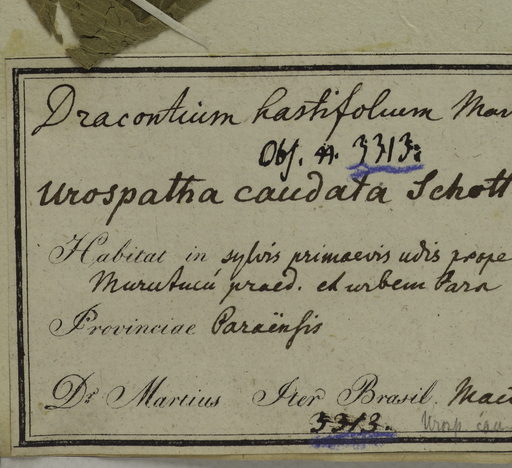 Dracontium hastifolium Mar
Obs. n. 3313.
Urospatha caudata Schott
Habitat in sylvis primaevis udis prope
Murutucú praed. et urbem Para
Provinciae Paraënsis
Dr Martius Iter Brasil.
3313. Urosp. cau